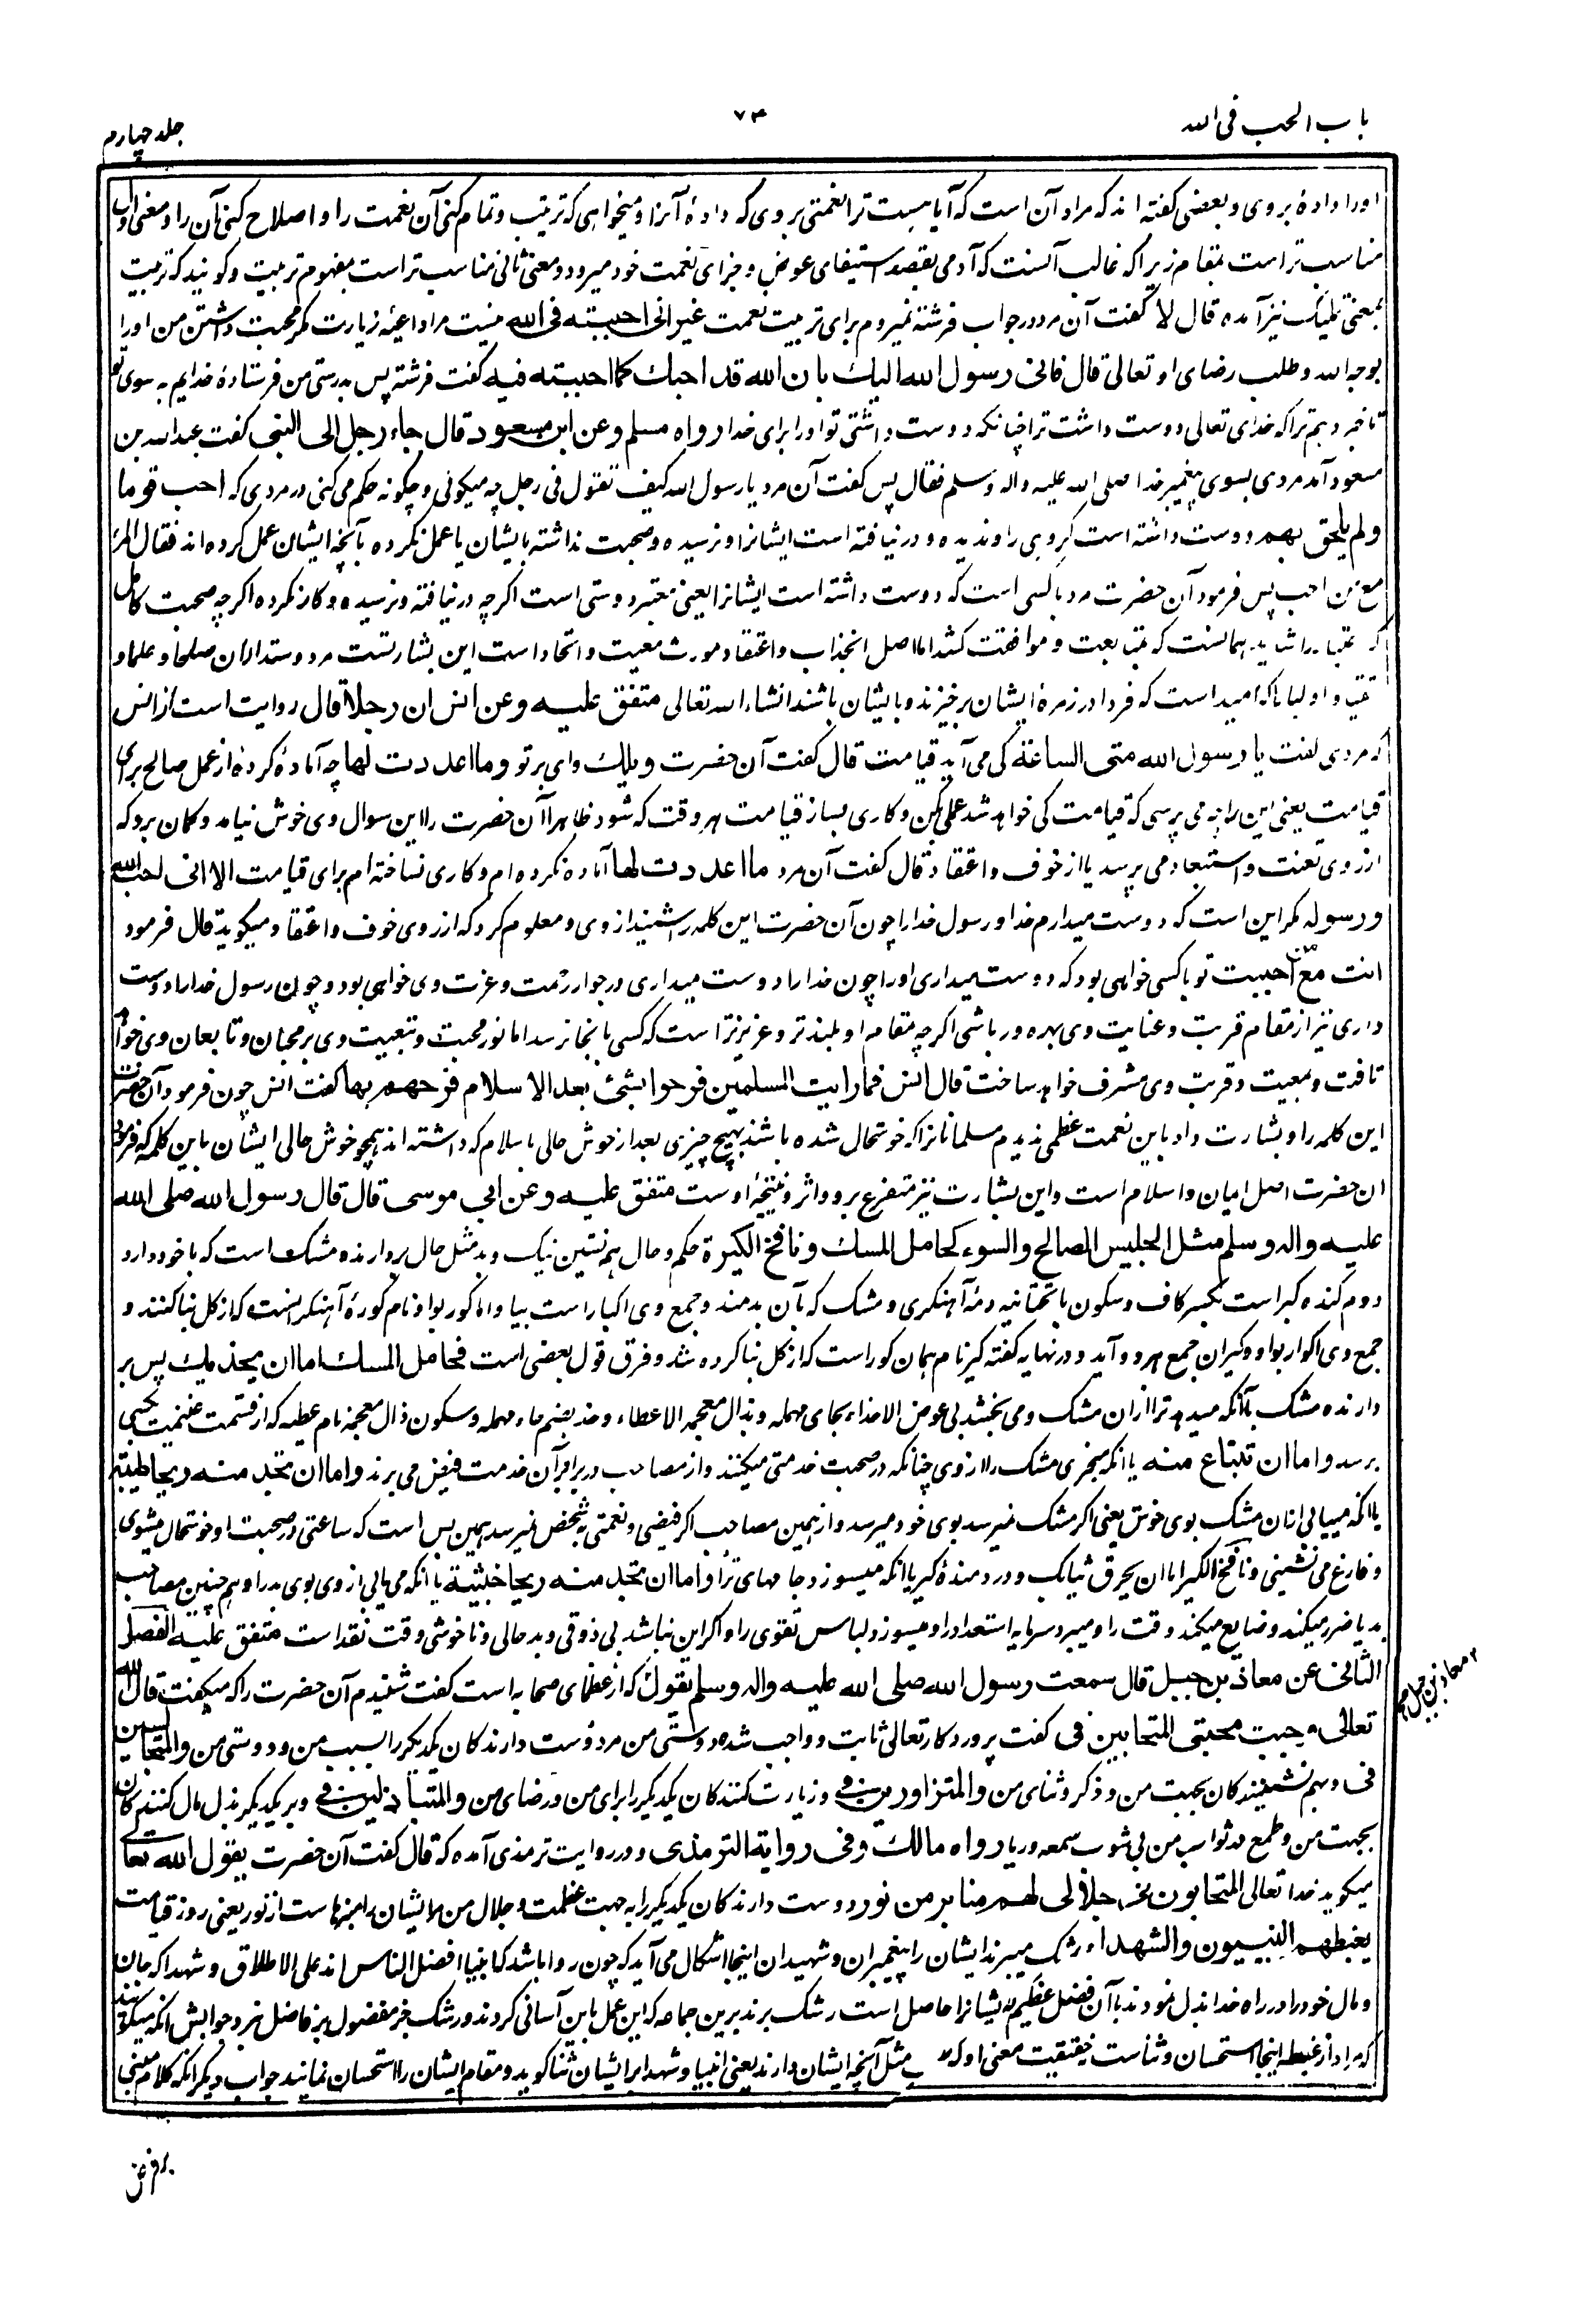 باب الحب فی الله
۷۳
جلد چهارم
او را دادهٔ بر وی و بعضی گفته اند که مراد آن است که آیا هست ترا نعمتی بر وی که دادهٔ آنرا و میخواهی که ترتیب و تمام کنی آن نعمت را و اصلاح کنی آن را و معنی اول
مناسب تر است بمقام زیرا که غالب آنست که آدمی بقصد استیفای عوض و جزای نعمت خود میرود و معنی ثانی مناسب تر است بمفهوم تربیت و گویند که تربیت
بمعنی تملیک نیز آمده قال لا گفت آن مرد در جواب فرشته نمیروم برای تربیت نعمت غیر انی احببته فی الله نیست مرا داعیهٔ زیارت مگر محبت داشتن من او را
بوجه الله و طلب رضای او تعالی قال فانی رسول الله الیك بان الله قد احبك کما احببته فیه گفت فرشته پس بدرستی من فرستادهٔ خدایم به سوی تو
تا خبر دهم ترا که خدای تعالی دوست داشت ترا چنانکه دوست داشتی تو او را برای خدا رواه مسلم وعن ابن مسعود قال جاء رجل الی النبی گفت عبدالله بن
مسعود آمد مردی بسوی پیغمبر خدا صلی الله علیه واله وسلم فقال پس گفت آن مرد یا رسول الله کیف تقول فی رجل چه میگوئی و چگونه حکم می کنی در مردی که احب قوما
ولم یلحق بهم دوست داشته است گروهی را و ندیده و در نیافته است ایشانرا و نرسیده و صحبت نداشته بایشان یا عمل نکرده بآنچه ایشان عمل کرده اند فقال المرء
مع من احب پس فرمود آن حضرت مرد با کسی است که دوست داشته است ایشانرا یعنی معتبر دوستی است اگرچه در نیافته و نرسیده و کار نکرده اگرچه صحبت کامل
که اعتبار را شاید همانست که بمتابعت و موافقت کشد اما اصل انجذاب و اعتقاد مورث معیت و اتحاد است این بشارتست مر دوستداران صلحا و علما و
اتقیا و اولیا را که امید است که فردا در زمرهٔ ایشان برخیزند و بایشان باشند انشاء الله تعالی متفق علیه وعن انس ان رجلا قال روایت است از انس
که مردی گفت یا رسول الله متی الساعة کی می آید قیامت قال گفت آن حضرت ویلك وای بر تو وما اعددت لها چه آماده کردهٔ از عمل صالح برای
قیامت یعنی این را چه می پرسی که قیامت کی خواهد شد عملی بکن و کاری بساز قیامت هر وقت که شود ظاهرا آن حضرت را این سوال وی خوش نیامد و گمان برد که
از روی تعنت و استبعاد می پرسد یا از خوف و اعتقاد قال گفت آن مرد ما اعددت لها آماده نکرده ام و کاری نساخته ام برای قیامت الا انی احب الله
ورسوله مگر این است که دوست میدارم خدا و رسول خدا را چون آن حضرت این کلمه را شنید از وی و معلوم کرد که از روی خوف و اعتقاد میگوید قال فرمود
انت مع من احببت تو با کسی خواهی بود که دوست میداری او را چون خدا را دوست میداری در جوار رحمت و عزت وی خواهی بود و چون رسول خدا را دوست
داری نیز از مقام قربت و عنایت وی بهره ور باشی اگرچه مقام او بلندتر و عزیزتر است که کسی بانجا نرسد اما نور محبت و تبعیت وی بر محبان و تابعان وی خواهد
تافت و بمعیت و قربت وی مشرف خواهد ساخت قال انس فما رایت المسلمین فرحوا بشئ بعد الاسلام فرحهم بها گفت انس چون فرمود آن حضرت
این کلمه را و بشارت داد باین نعمت عظمی ندیدم مسلمانانرا که خوشحال شده باشند بهیچ چیزی بعد از خوش حالی باسلام که داشته اند همچو خوش حالی ایشان باین کلمه که فرمود
ان حضرت اصل ایمان و اسلام است و این بشارت نیز متفرع بر و و اثر و نتیجهٔ اوست متفق علیه وعن ابی موسی قال قال رسول الله صلی الله
علیه واله وسلم مثل الجلیس الصالح والسوء کحامل المسك ونافخ الکیر قصه حکم و حال هم نشین نیک و بد مثل حال بردارنده مشک است که با خود دارد
و دم کننده کیر است بکسر کاف و سکون یاء تحتانیه دمهٔ آهنگری و مشک که بآن بدمند و جمع وی اکیار است بیا و اما کور بواو نام کورهٔ آهنگرانست که از گل بنا کنند و
جمع وی اکوار بواو و کیران جمع هر دو آید و در نهایه گفته کیر نام همان کور است که از گل بنا کرده شد و فرق قول بعضی است فحامل المسك اما ان یحذیك پس بر
دارنده مشک یا آنکه میدهد ترا از ان مشک و می بخشد بی عوض الاحذاء بحای مهمله و بذال معجمه الاعطاء و حذیا بضم حاء مهمله و سکون ذال معجمه نام عطیه که از قسمت غنیمت بکسی
برسد واما ان تبتاع منه یا انکه میخری مشک را از وی چنانکه در صحبت خدمتی میکنند و از مصاحب در برابر آن خدمت فیض می برند واما ان تجد منه ریحا طیبة
یا انکه مییابی ازان مشک بوی خوش یعنی اگر مشک نمیرسد بوی خود میرسد و از همین مصاحب اگر فیضی و نعمتی بشخص نمیرسد همین بس است که ساعتی در صحبت او خوشحال میشوی
و فارغ می نشینی ونافخ الکیر اما ان یحرق ثیابك و دردمندهٔ کیر یا انکه میسوزد جامهای ترا واما ان تجد منه ریحا خبیثة یا انکه می یابی از وی بوی بد را و هم چنین مصاحب
بد یا ضرر میکند و ضایع میکند وقت را و میبرد سرمایه استعداد را و میسوزد لباس تقوی را و اگر این نباشد بی ذوقی و بد حالی و ناخوشی وقت نقد است متفق علیه الفصل
الثانی عن معاذ بن جبل قال سمعت رسول الله صلی الله علیه واله وسلم یقول که از عظمای صحابه است گفت شنیدم آن حضرت را که میگفت قال الله
تعالی وجبت محبتی للمتحابین فی گفت پروردگار تعالی ثابت و واجب شده دوستی من مر دوست دارندگان یکدیگر را بسبب من و دوستی من والمتجالسین
فی و بهم نشینندگان بجهت من و ذکر و ثنای من والمتزاورین فی و زیارت کنندگان یکدیگر را برای من و رضای من والمتباذلین فی و بر یکدیگر بذل مال کنندگان
بجهت من و طمع ثواب من بی شوب سمعه و ریا رواه مالك وفی روایة الترمذی و در روایت ترمذی آمده که قال گفت آن حضرت یقول الله تعالی
میگوید خدا تعالی المتحابون فی جلالی لهم منابر من نور دوست دارندگان یکدیگر را به جهت عظمت و جلال من مر ایشان را منبرهاست از نور یعنی روز قیامت
یغبطهم النبیون والشهداء رشک میبرند ایشان را پیغمبران و شهیدان اینجا اشکال می آید که چون روا باشد که انبیا افضل الناس اند علی الاطلاق و شهدا که جان
و مال خود را در راه خدا بذل نمودند با آن فضل عظیم که ایشانرا حاصل است رشک برند برین جماعه که این عمل باین آسانی کردند و رشک جز مفضول بر فاضل نبرد جوابش انکه میگویند
که مراد از غبطه اینجا استحسان و ثناست حقیقت معنی او که مثل آنچه ایشان دارند یعنی انبیا و شهدا بر ایشان ثنا گویند و مقام ایشان را استحسان نمایند جواب دیگر انکه کلام مبنی
معاذ بن جبل
بر فرض